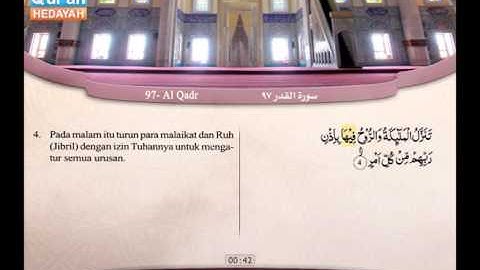 Qur'an
HEDAYAH
97- Al Qadr
سورة القدر ٩٧
4. Pada malam itu turun para malaikat dan Ruh
(Jibril) dengan izin Tuhannya untuk menga-
tur semua urusan.
تَنَزَّلُ الْمَلَٰٓئِكَةُ وَالرُّوحُ فِيهَا بِإِذْنِ
رَبِّهِمْ مِّنْ كُلِّ أَمْرٍ 4
00:42